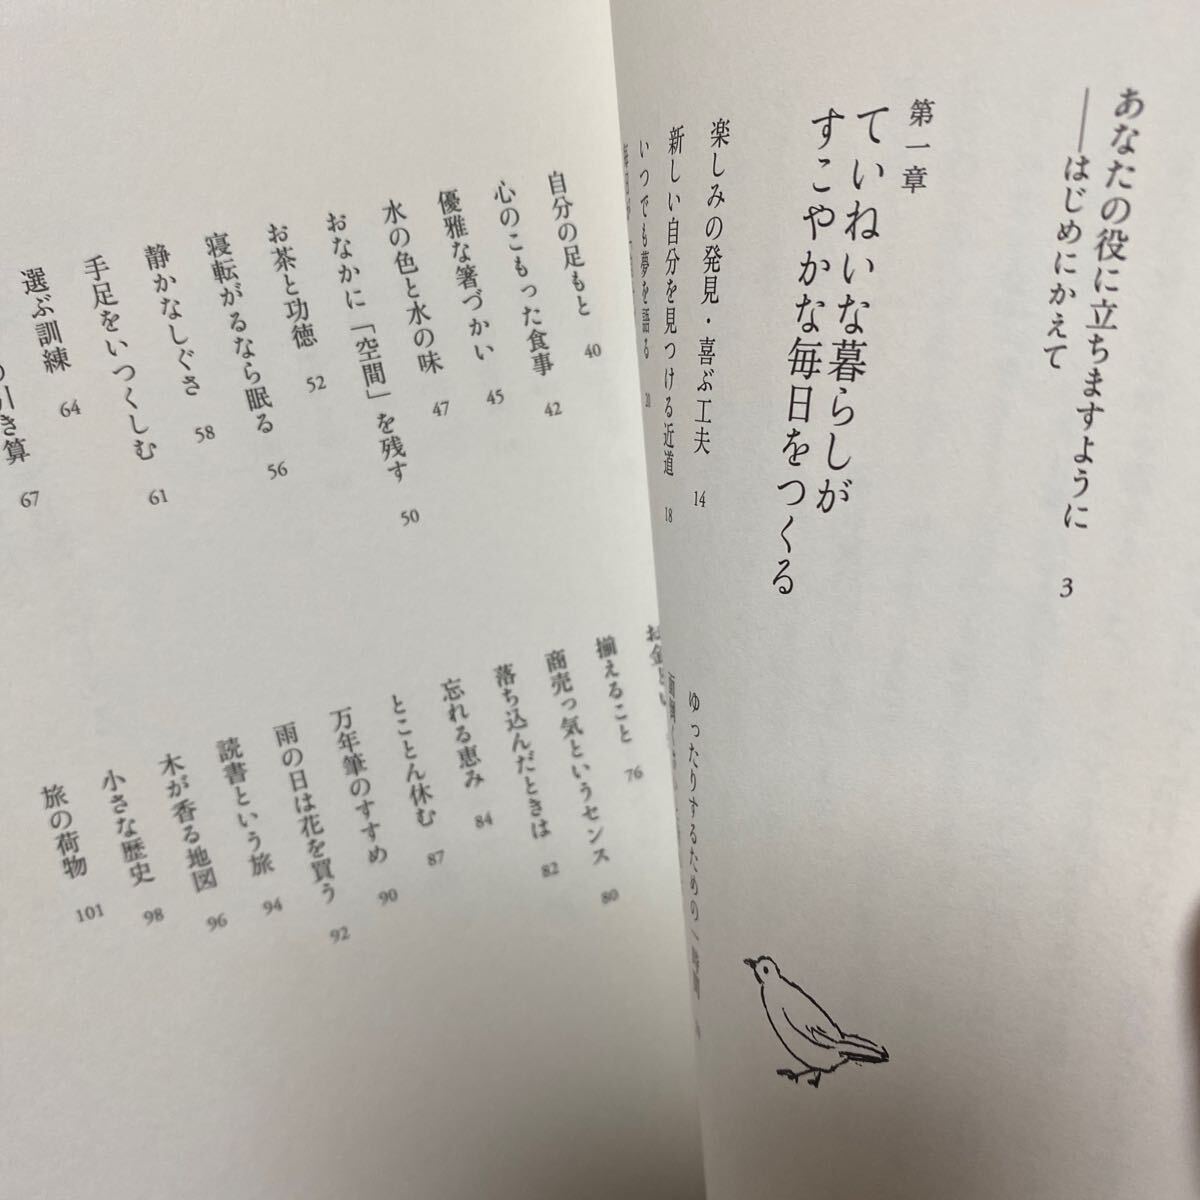 あなたの役に立ちますように
――はじめにかえて 3
第一章
ていねいな暮らしが
すこやかな毎日をつくる
楽しみの発見・喜ぶ工夫 14
新しい自分を見つける近道 18
いつでも夢を語る 20
ゆったりするための一時間
自分の足もと 40
心のこもった食事 42
優雅な箸づかい 45
水の色と水の味 47
おなかに「空間」を残す 50
お茶と功徳 52
寝転がるなら眠る 56
静かなしぐさ 58
手足をいつくしむ 61
選ぶ訓練 64
の引き算 67
揃えること 76
商売っ気というセンス 80
落ち込んだときは 82
忘れる恵み 84
とことん休む 87
万年筆のすすめ 90
雨の日は花を買う 92
読書という旅 94
木が香る地図 96
小さな歴史 98
旅の荷物 101